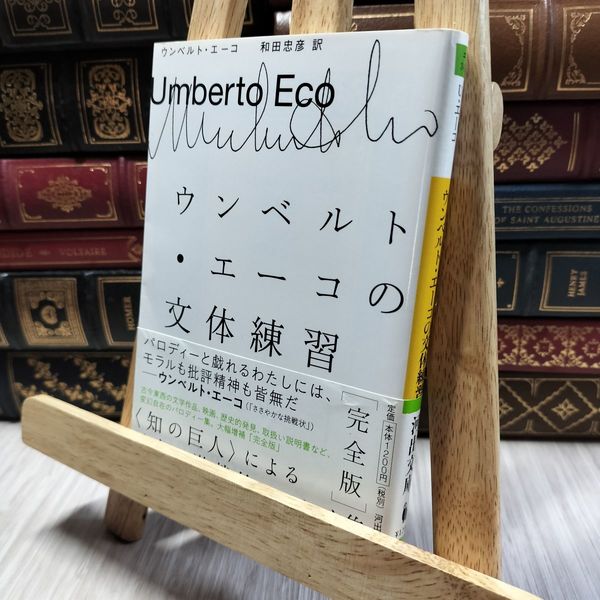 ウンベルト・エーコ 和田忠彦 訳
Umberto Eco
ウンベルト
・エーコの
文体練習
[完全版]
パロディーと戯れるわたしには、
モラルも批評精神も皆無だ
──ウンベルト・エーコ(「ささやかな挑戦状」)
古今東西の文学作品、映画、歴史的発見、取扱い説明書など、
変幻自在のパロディー集、大幅増補「完全版」
〈知の巨人〉による
定価 本体1200円(税別) 河出
ウンベルト・エーコの文体練習
THE CONFESSIONS
OF SAINT AUGUSTINE
VOLTAIRE
HOMER
HENRY
JAMES